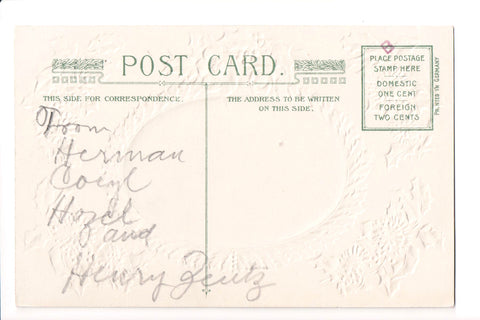 POST CARD.
THIS SIDE FOR CORRESPONDENCE.
THE ADDRESS TO BE WRITTEN
ON THIS SIDE.
B
PLACE POSTAGE
STAMP HERE
DOMESTIC
ONE CENT
FOREIGN
TWO CENTS
PRINTED IN GERMANY
From
Herman
Hazel
and
Henry Zentz